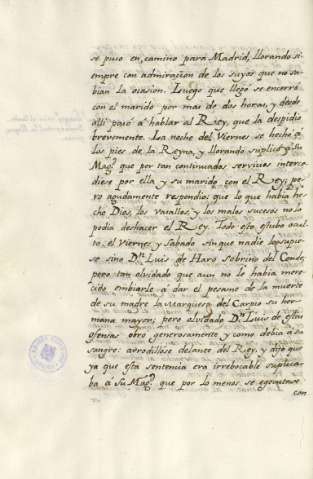 se puso en, camino para Madrid, llorando si-
empre con admiracion de los suyos que no sa-
bian la ocasion. Luego que llegó se encerró
con el marido por mas de dos horas, y desde
alli pasó á hablar al Rey, que la despidió
brevemente. La noche del Viernes se hechó á
los pies de la Reyna, y llorando suplicó a Su
Magd. que por tan continuados servicios interce-
diese por ella y su marido con el Rey; pe-
ro agudamente respondió que lo que había he-
cho Dios, los Vasallos, y los malos sucesos no lo
podia deshacer el Rey. Todo esto estubo ocul-
to, el Viernes y Sábado sin que nadie lo supie-
se sino Dn. Luis de Haro Sobrino del Conde,
pero tan olvidado que aun no le habia mere-
cido embiarle á dar el pesame de la muerte
de su madre la Marquesa del Carpio su her-
mana mayor; pero olvidado Dn. Luis de estas
ofensas obró generosamente y como debia á su
sangre: arrodillose delante del Rey, y dijo que
ya que esta sentencia era irrebocable suplica-
ba á Su Magd. que por lo menos se egecutase
con